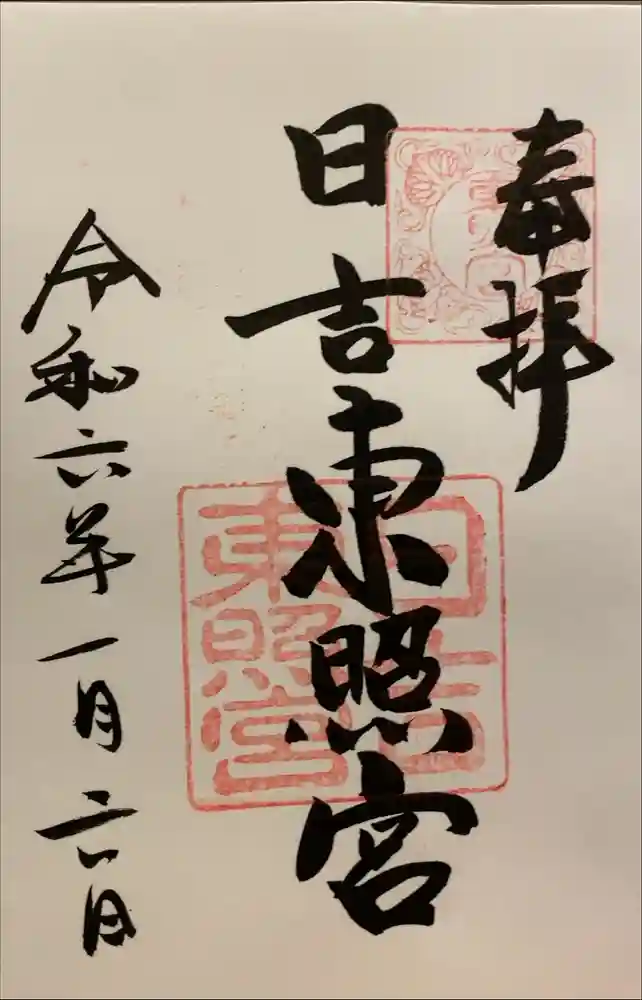 奉拝
日吉東照宮
日吉
東照宮
令和六年一月六日